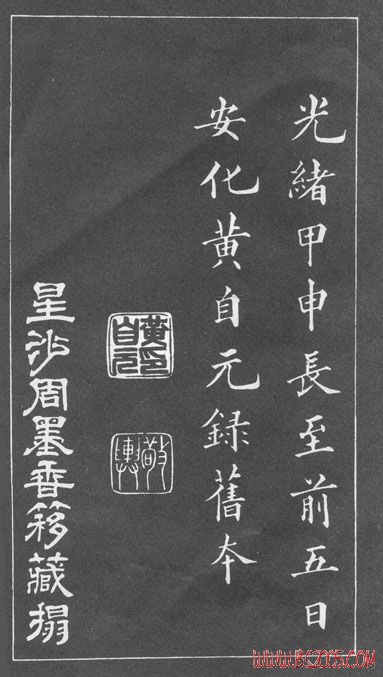 光緒甲申長至前五日
安化黃自元錄舊本
黃自元印
敬輿
星沙周墨香簃藏搨